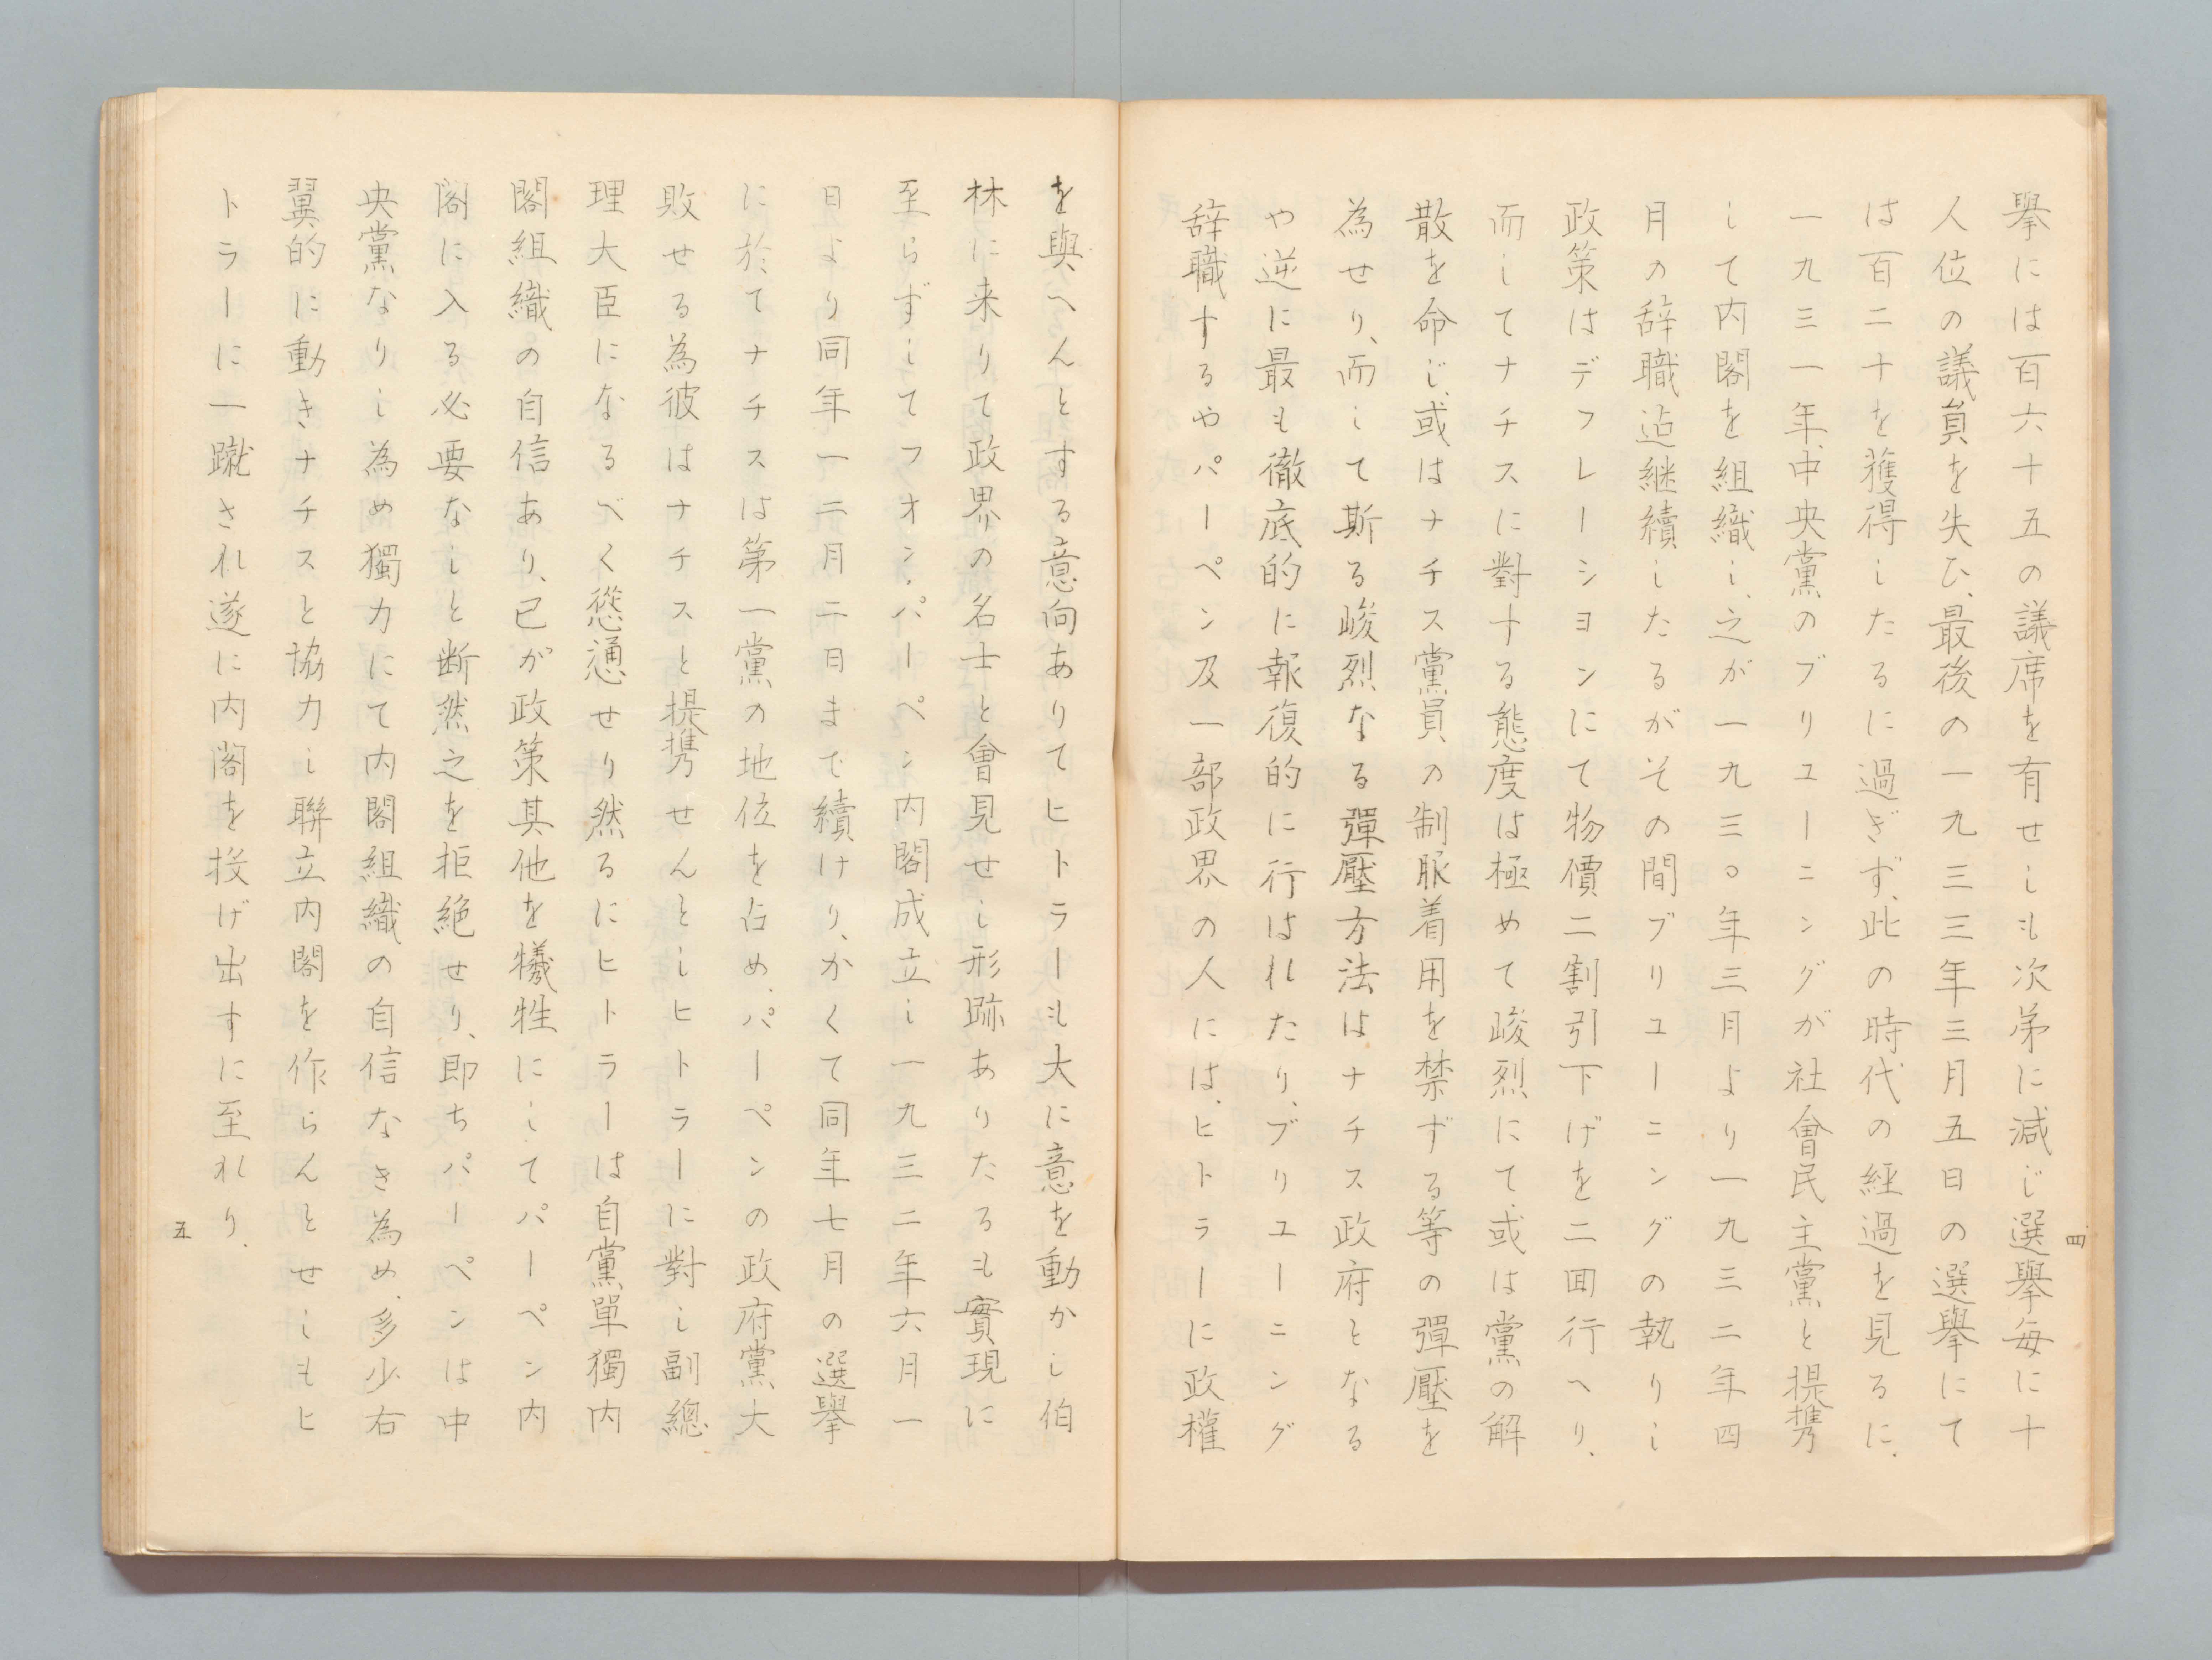 四
擧には百六十五の議席を有せしも次第に減じ選擧毎に十
人位の議員を失ひ、最後の一九三三年三月五日の選擧にて
は百二十を獲得したるに過ぎず、此の時代の経過を見るに、
一九三一年、中央黨のブリユーニングが社會民主黨と提携
して内閣を組織し、之が一九三〇年三月より一九三二年四
月の辞職迠継續したるがその間ブリユーニングの執りし
政策はデフレーシヨンにて物價二割引下げを二囬行へり、
而してナチスに對する態度は極めて峻烈にて、或は黨の解
散を命じ、或はナチス黨員の制服着用を禁ずる等の彈壓を
為せり、而して斯る峻烈なる彈壓方法はナチス政府となる
や逆に最も徹底的に報復的に行はれたり、ブリユーニング
辞職するやパーペン及一部政界の人には、ヒトラーに政權
を與へんとする意向ありてヒトラーも大に意を動かし伯
林に来りて政界の名士と會見せし形跡ありたるも實現に
至らずしてフオン・パーペン内閣成立し一九三二年六月一
日より同年一二月二日まで續けり、かくて同年七月の選擧
に於てナチスは第一黨の地位を占め、パーペンの政府黨大
敗せる為彼はナチスと提携せんとしヒトラーに對し副總
理大臣になるべく慫慂せり然るにヒトラーは自黨單獨内
閣組織の自信あり、己が政策其他を犠牲にしてパーペン内
閣に入る必要なしと断然之を拒絶せり、即ちパーペンは中
央黨なりし為め獨力にて内閣組織の自信なき為め、多少右
翼的に動きナチスと協力し聯立内閣を作らんとせしもヒ
トラーに一蹴され遂に内閣を投げ出すに至れり、
五